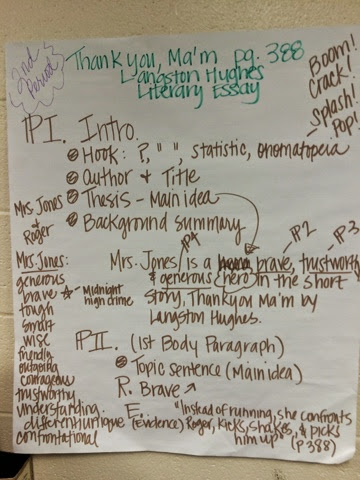 2nd Period
Thank you, Ma'm pg. 388
Langston Hughes
Literary Essay
Boom!
Crack!
Splash!
Pop!
IPI. Intro.
Hook: ?, " ", statistic, onomatopeia
Author & Title
Thesis - Main idea
Background summary
Mrs. Jones
&
Roger
IP1 IP2 IP3
Mrs. Jones is a brave, trustworthy
& generous hero in the short
story, Thank you Ma'm by
Langston Hughes.
Mrs. Jones:
generous
brave Midnight
high crime
tough
smart
wise
friendly
outgoing
courageous
trustworthy
understanding
different/unique
confrontational
IPII. (1st Body Paragraph)
Topic sentence (Main idea)
R. Brave
E. "Instead of running, she confronts
(Evidence) Roger, kicks, shakes, & picks
him up" (p 388)